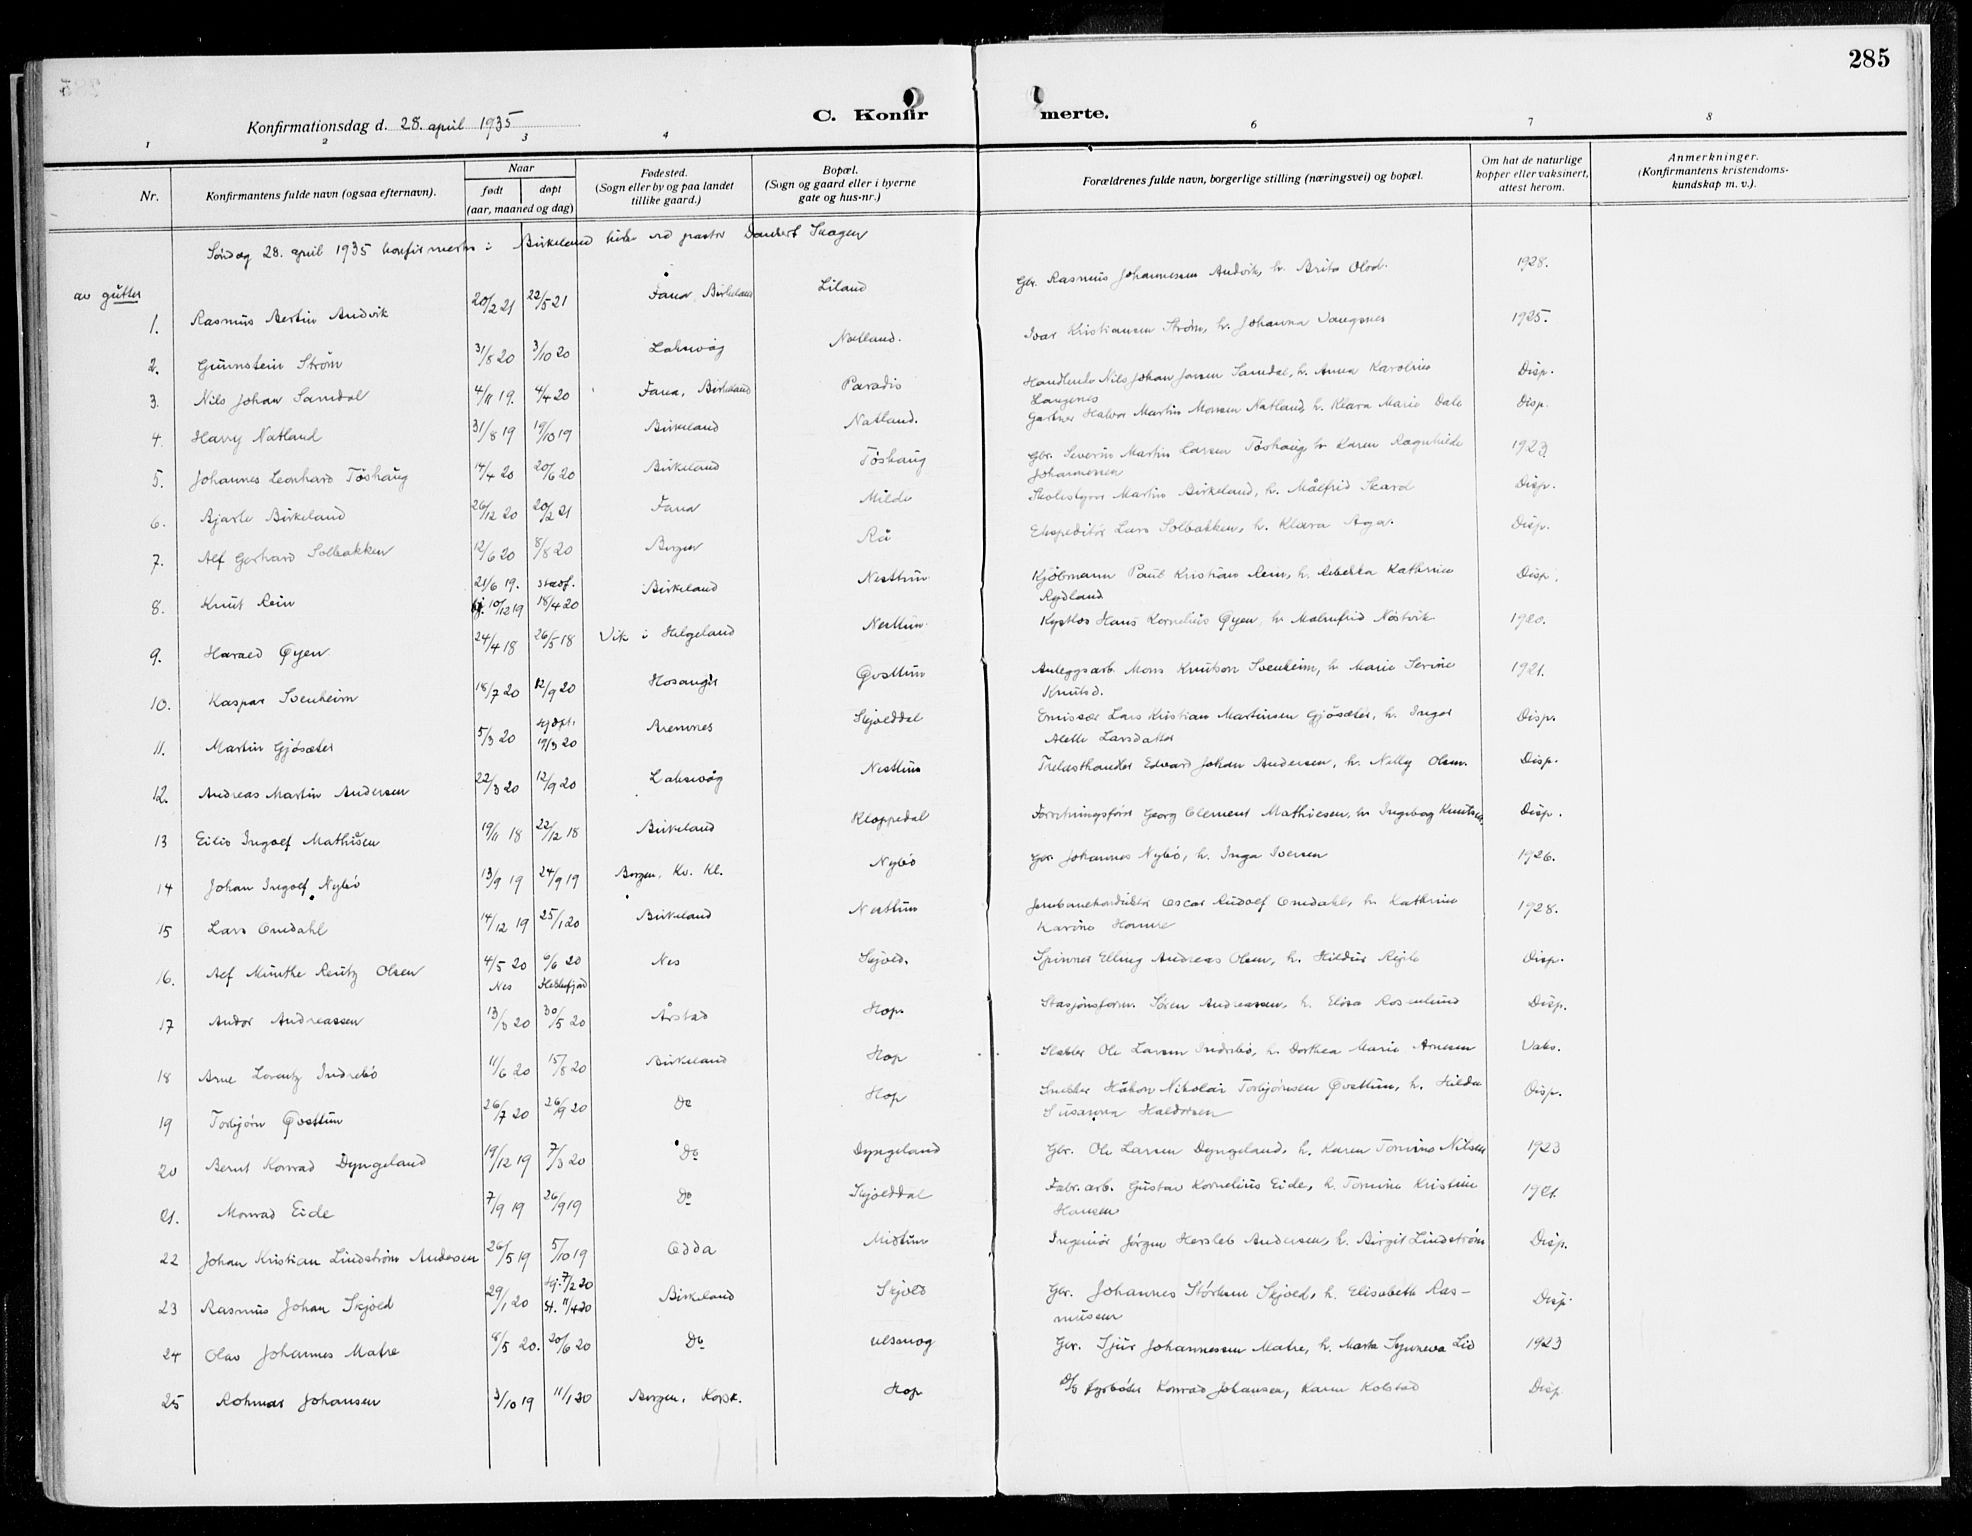 285
Konfirmationsdag d. 28. april 1935
C. Konfirmerte.
1 2 3 4 6 7 8
Nr. Konfirmantens fulde navn (ogsaa efternavn). Naar født døpt (aar, maaned og dag) Fødested. (Sogn eller by og paa landet tillike gaard.) Bopæl. (Sogn og gaard eller i byerne gate og hus-nr.) Forældrenes fulde navn, borgerlige stilling (næringsvei) og bopæl. Om hat de naturlige kopper eller vaksinert, attest herom. Anmerkninger. (Konfirmantens kristendoms-kundskap m. v.).
Søndag 28. april 1935 konfirmertes i Birkeland kirke ved pastor Skagen
av gutter
1. Rasmus Bertin Andvik 20/2 21 22/5 21 Fana, Birkeland Liland Gbr. Rasmus Johannessen Andvik, h. Brita Olsd. 1928.
2. Gunnstein Strøm 31/8 20 3/10 20 Laksevåg Natland. Ivar Kristiansen Strøm, h. Johanna Vangsnes 1925.
3. Nils Johan Samdal 4/11 19. 4/4 20 Fana, Birkeland Paradis Handlende Nils Johan Jansen Samdal, h. Anna Karoline Disp.
Langenes
4. Harry Natland 31/8 19 19/10 19 Birkeland Natland. Gartner Halvor Martin Monsen Natland, h. Klara Marie Dale Disp.
5. Johannes Leonhard Tøshaug 14/4 20 20/6 20 Birkeland Tøshaug Gbr. Severin Martin Larsen Tøshaug, h. Karen Ragnhilde 1923.
Johannessen
6. Bjarte Birkeland 26/12 20 20/2 21 Fana Milde Skolestyrer Martin Birkeland, h. Målfrid Skard Disp.
7. Alf Gerhard Solbakken 12/6 20 8/8 20 Bergen Rå Ekspeditør Lars Solbakken, h. Klara Aga. Disp.
8. Knut Rein 21/6 19. stadf. Birkeland Nesttun Kjøbmann Paul Kristian Rein, h. Rebekka Kathrine Disp.
hj. 10/12 19 18/4 20 Rydland
9. Harald Øyen 24/4 18 26/5 18 Vik i Helgeland Nesttun Hans Kornelius Øyen, h. Malmfrid Nøstvik 1920.
10. Kaspar Svenheim 18/7 20 12/9 20 Hosanger Øvsttun Anleggsarb. Mons Knutson Svenheim, h. Marie Serine 1921.
Knutsd.
11. Martin Gjøsæter 5/3 20 hj.døpt. 19/3 20 Aremnes Skjolddal Emissær Lars Kristian Martinsen Gjøsæter, h. Inger Disp.
Alette Larsdatter
12. Andreas Martin Andersen 22/3 20 12/9 20 Laksevåg Nesttun Trelasthandler Edvard Johan Andersen, h. Nelly Olsen. Disp.
13 Eilif Ingolf Mathisen 19/11 18 22/12 18 Birkeland Kloppedal Forretningsfører Georg Clement Mathiesen, h. Ingeborg Knutsen Disp.
14 Johan Ingolf Nybø 13/9 19 24/9 19 Bergen, Kv. Kl. Nybø Gbr. Johannes Nybø, h. Inga Iversen 1926.
15 Lars Omdahl 14/12 19 25/1 20 Birkeland Nesttun Jernbanekonduktør Oscar Rudolf Omdahl, h. Kathrine 1928.
Karine Hamre
16. Alf Munthe Reutz Olsen 4/5 20 6/6 20 Nes Skjold. Spinner Elling Andreas Olsen, h. Hildur Disp.
Nes
17 Andor Andreassen 13/3 20 30/5 20 Årstad Hop. Stasjonsform. Søren Andreassen, h. Elisa Rosenlund Disp.
18 Arne Lorentz Indrebø 11/6 20 15/8 20 Birkeland Hop Slakter Ole Larsen Indrebø, h. Dorthea Marie Arnesen Vaks.
19 Torbjørn Øvsttun 26/7 20 26/9 20 Do Hop Snekker Håkon Nikolai Torbjørnsen Øvsttun, h. Hilda Disp.
Susanna Haldorsen
20 Bernt Konrad Dyngeland 19/12 19 7/3 20 Do Dyngeland Gbr. Ole Larsen Dyngeland, h. Karen Tomine Nilsen 1923
21. Monrad Eide 7/9 19 26/9 19 Do Skjolddal Fabr.arb. Gustav Kornelius Eide, h. Tomine Kristine 1921.
Hansen
22 Johan Kristian Lindstrøm Andersen 26/5 19 5/10 19 Odda Midtun Ingeniør Jørgen Hersleb Andersen, h. Birgit Lindstrøm Disp.
23 Rasmus Johan Skjold 29/1 20 hj. 7/2 20 st. 11/4 20 Birkeland Skjold Gbr. Johannes Størksen Skjold, h. Elisabeth Ras-
mussen Disp.
24 Olav Johannes Matre 8/5 20. 20/6 20 Do Ulsmåg Gbr. Sjur Johannessen Matre, h. Marta Synneva Lid 1923
25 Rohmar Johansen 3/10 19 11/1 20 Bergen, Korsk. Hop D/S fyrbøter Konrad Johansen, Karen Kolstad Disp.